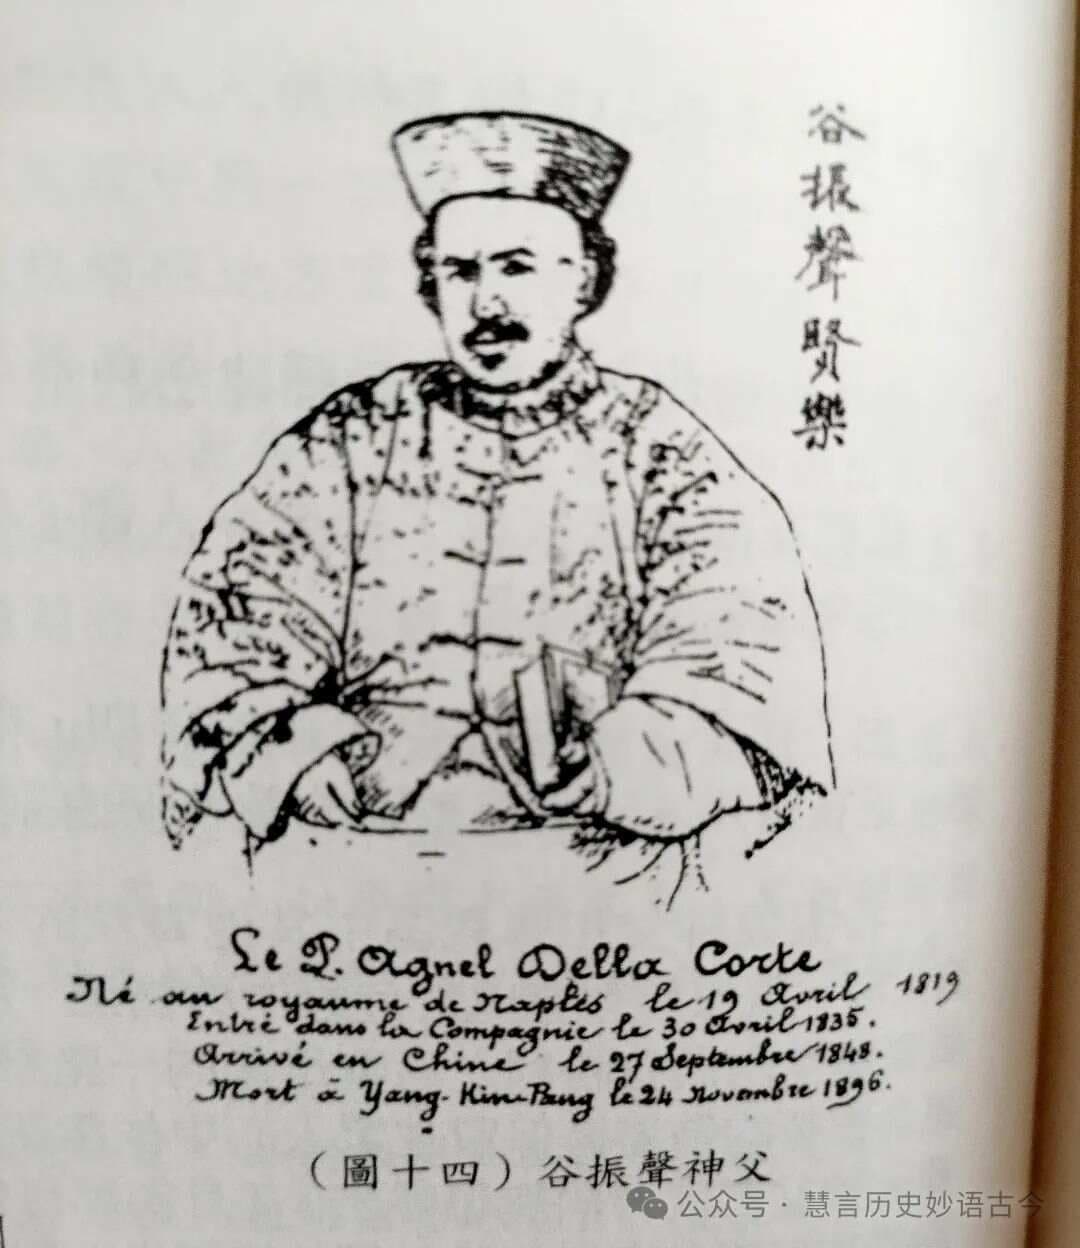 谷振聲賢樂
Le P. Agnel Della Corte
Né au royaume de Naples le 19 Avril 1819
Entré dans la Compagnie le 30 Avril 1835.
Arrivé en Chine le 27 Septembre 1848.
Mort à Yang-Kin-Pang le 24 Novembre 1896.
（圖十四）谷振聲神父
公众号·慧言历史妙语古今